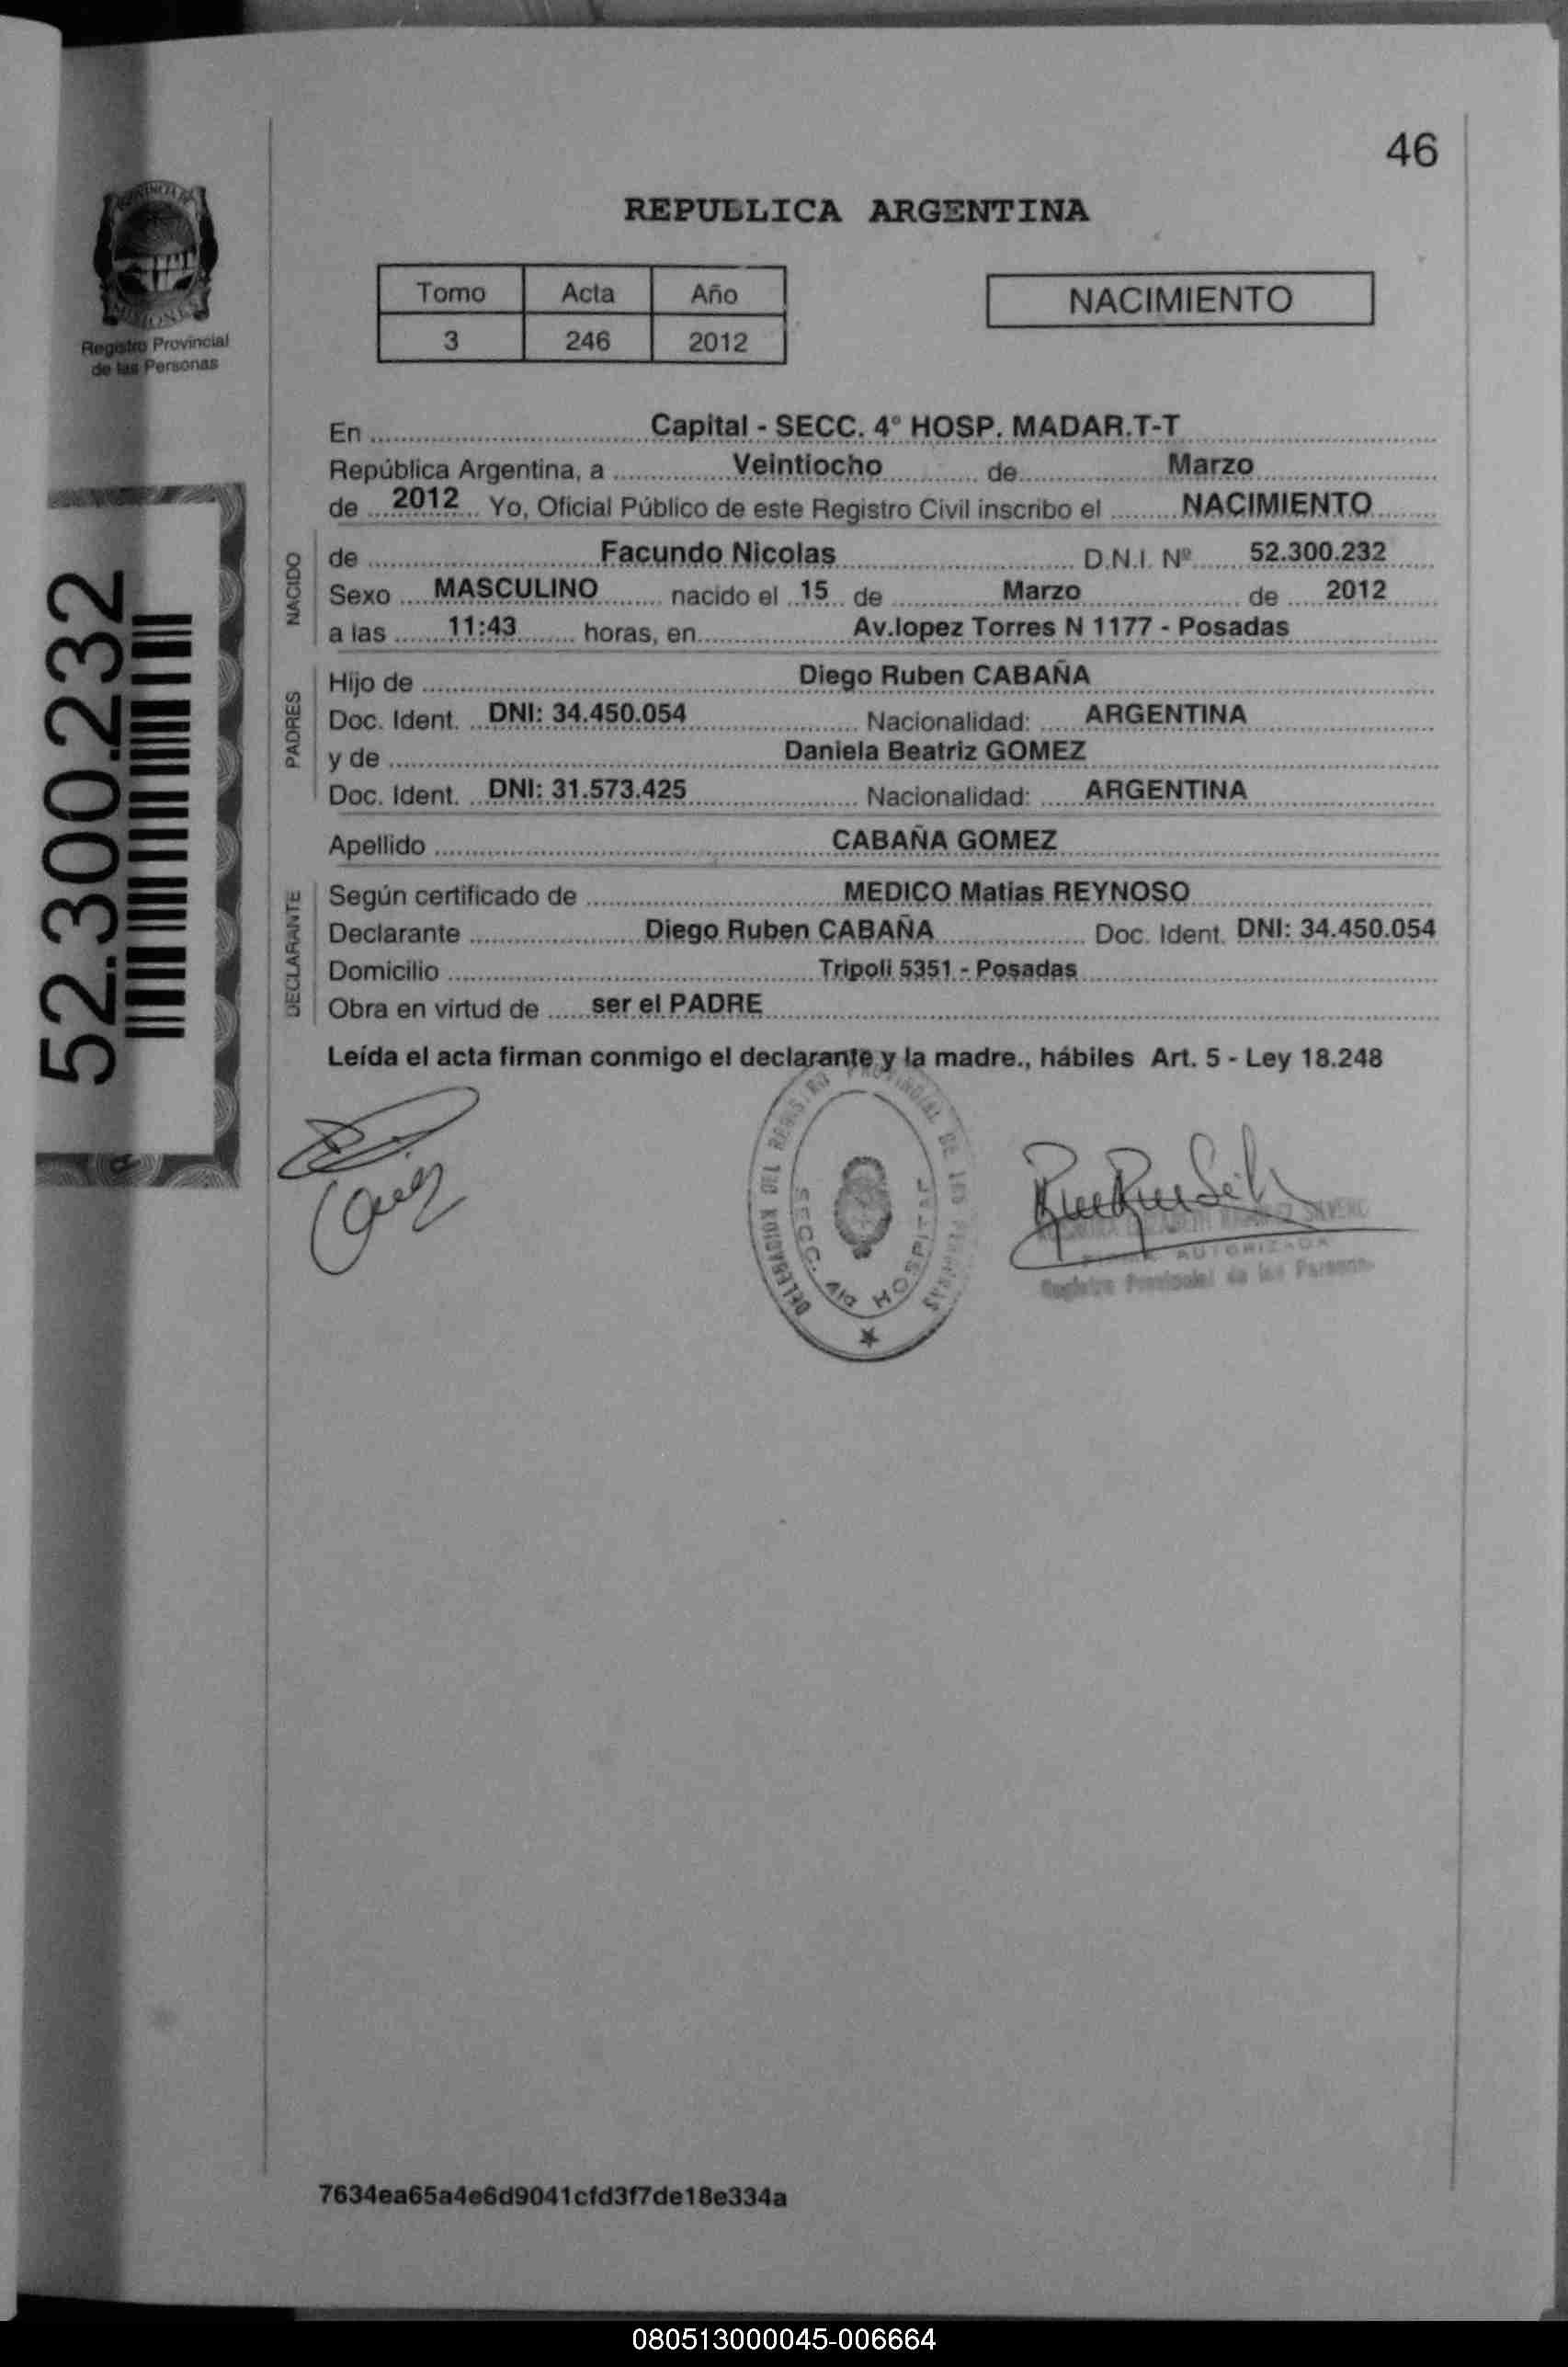 46
REPUBLICA ARGENTINA
Tomo Acta Año
3 246 2012
NACIMIENTO
Registro Provincial
de las Personas
52.300.232
En Capital - SECC. 4° HOSP. MADAR.T-T
República Argentina, a Veintiocho de Marzo
de 2012 Yo, Oficial Público de este Registro Civil inscribo el NACIMIENTO
NACIDO
de Facundo Nicolas D.N.I. Nº 52.300.232
Sexo MASCULINO nacido el 15 de Marzo de 2012
a las 11:43 horas, en Av.lopez Torres N 1177 - Posadas
PADRES
Hijo de Diego Ruben CABAÑA
Doc. Ident. DNI: 34.450.054 Nacionalidad: ARGENTINA
y de Daniela Beatriz GOMEZ
Doc. Ident. DNI: 31.573.425 Nacionalidad: ARGENTINA
Apellido CABAÑA GOMEZ
DECLARANTE
Según certificado de MEDICO Matias REYNOSO
Declarante Diego Ruben CABAÑA Doc. Ident. DNI: 34.450.054
Domicilio Tripoli 5351 - Posadas
Obra en virtud de ser el PADRE
Leída el acta firman conmigo el declarante y la madre., hábiles Art. 5 - Ley 18.248
DELEGACION DEL REGISTRO PROVINCIAL DE LAS PERSONAS
SECC. 4ta HOSPITAL
AUTORIZADA
Registro Provincial de las Personas
7634ea65a4e6d9041cfd3f7de18e334a
080513000045-006664